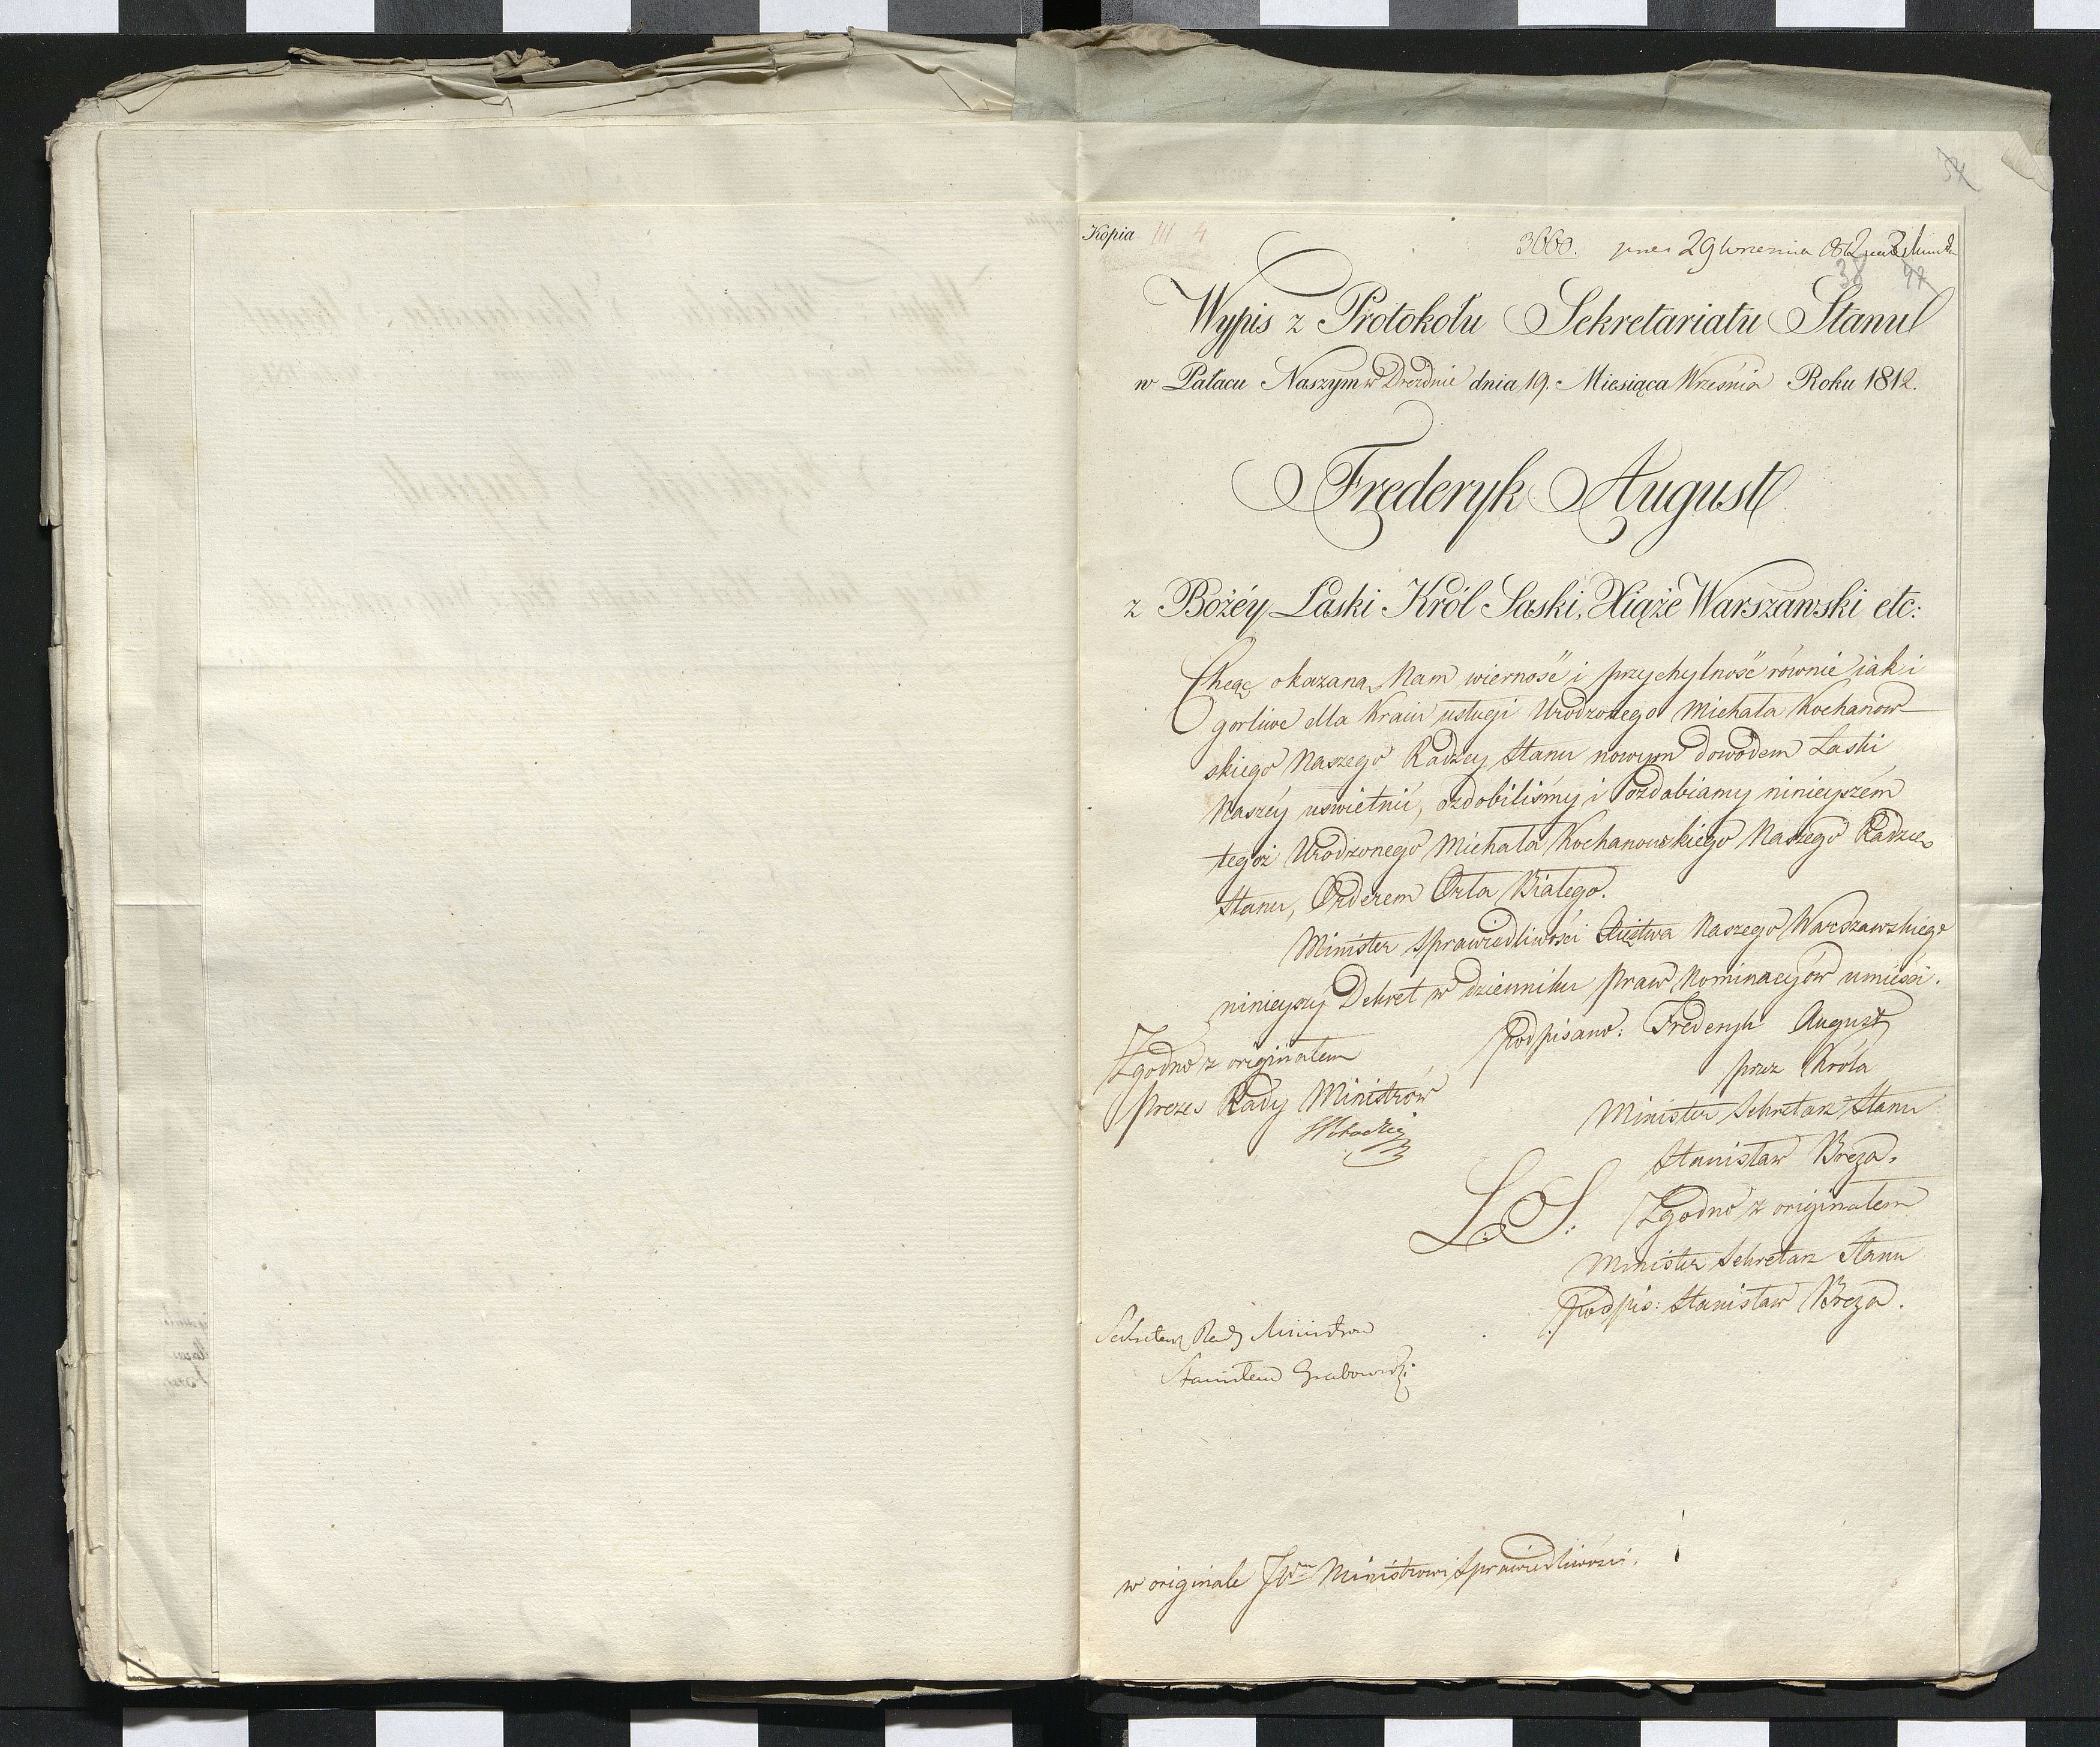 Kopia III 4
3660. 29 Września
38
Wypis z Protokołu Sekretariatu Stanu
w Pałacu Naszym w Dreźdnie dnia 19. Miesiąca Września Roku 1812.
Frederyk August
z Bożéy Łaski Król Saski, Xiąże Warszawski etc:
Chcąc okazaną Nam wierność i przychylność równie iak i
gorliwe dla Kraiu usługi Urodzonego Michała Kochanow-
skiego Naszego Radzcy Stanu nowym dowodem Łaski
Naszéy uświetnić, ozdobiliśmy i ozdabiamy ninieyszém
tegoż Urodzonego Michała Kochanowskiego Naszego Radzcę
Stanu, Orderem Orła Białego.
Minister Sprawiedliwości Xięstwa Naszego Warszawskiego
ninieyszy Dekret w dzienniku praw Nominacyów umieści.
Zgodno z originałem
Prezes Rady Ministrów
Podpisano: Frederyk August
przez Króla
Minister Sekretarz Stanu
Stanisław Breza.
L. S. Zgodno z originałem
Minister Sekretarz Stanu
podpis: Stanisław Breza.
Sekretarz Rady Ministrow
Stanisław Grabowski
w originale JWmu Ministrowi Sprawiedliwości.